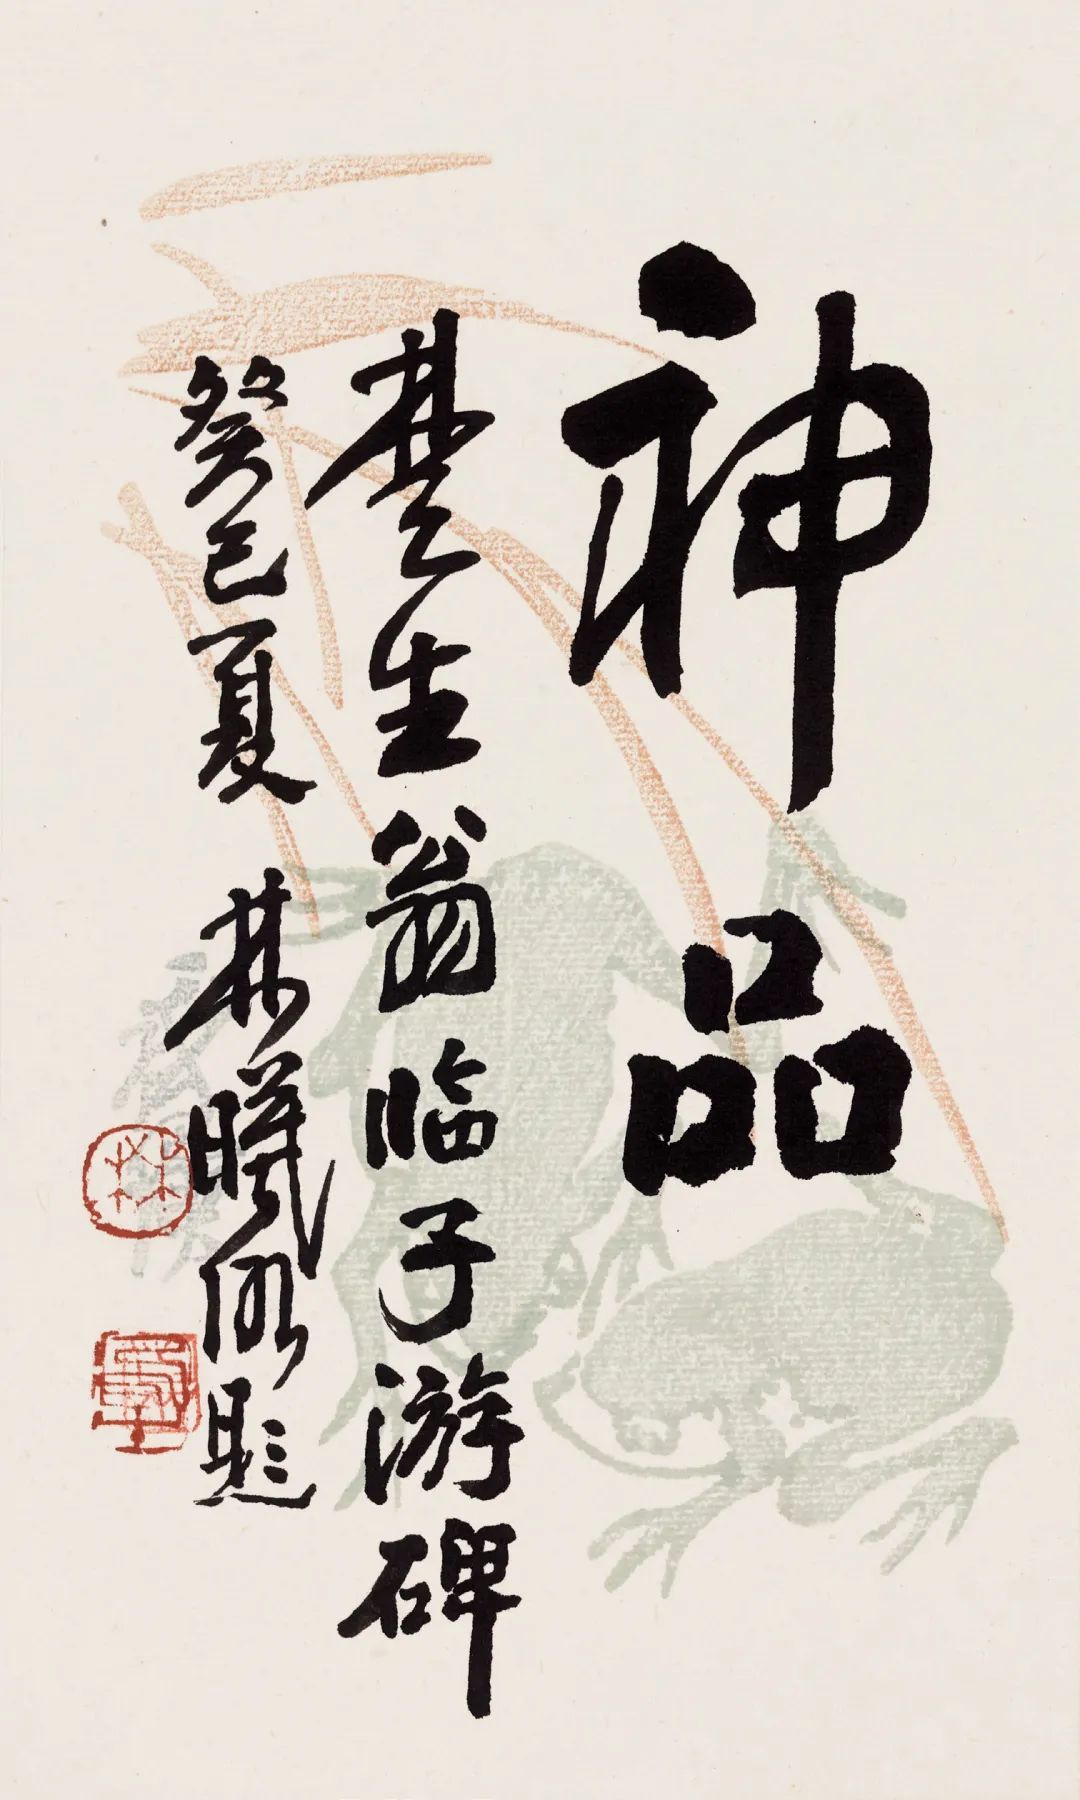 神品
楚生翁临子游碑
癸巳夏 林曦明题
林